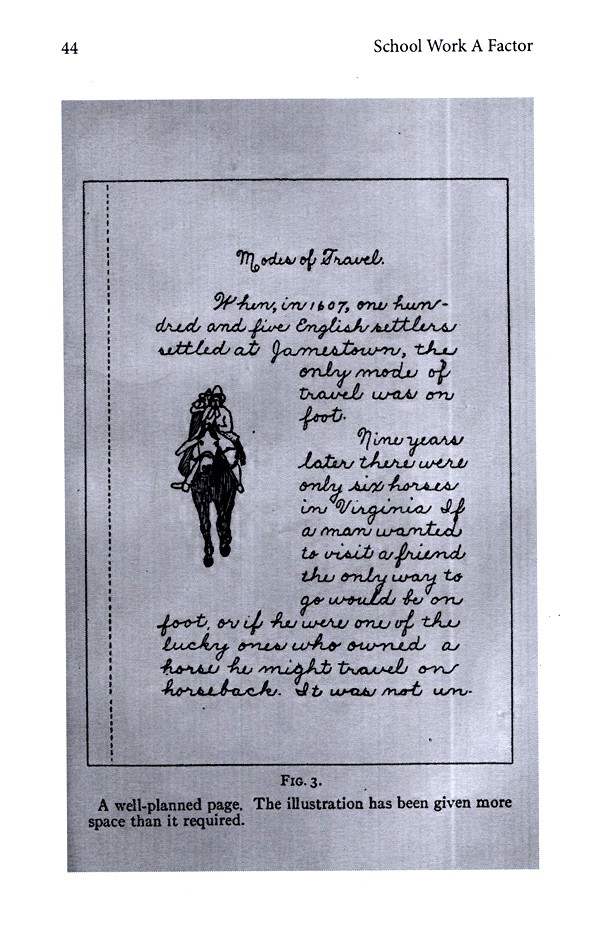 44
School Work A Factor
Modes of Travel.
When, in 1607, one hun-
dred and five English settlers
settled at Jamestown, the
only mode of
travel was on
foot.
Nine years
later there were
only six horses
in Virginia If
a man wanted
to visit a friend
the only way to
go would be on
foot, or if he were one of the
lucky ones who owned a
horse he might travel on
horseback. It was not un-
FIG. 3.
A well-planned page. The illustration has been given more
space than it required.